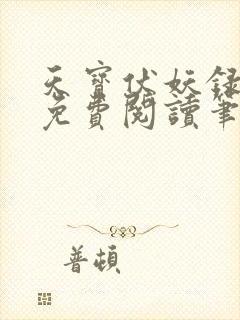 天寶伏妖録
免費閱讀筆
普頓